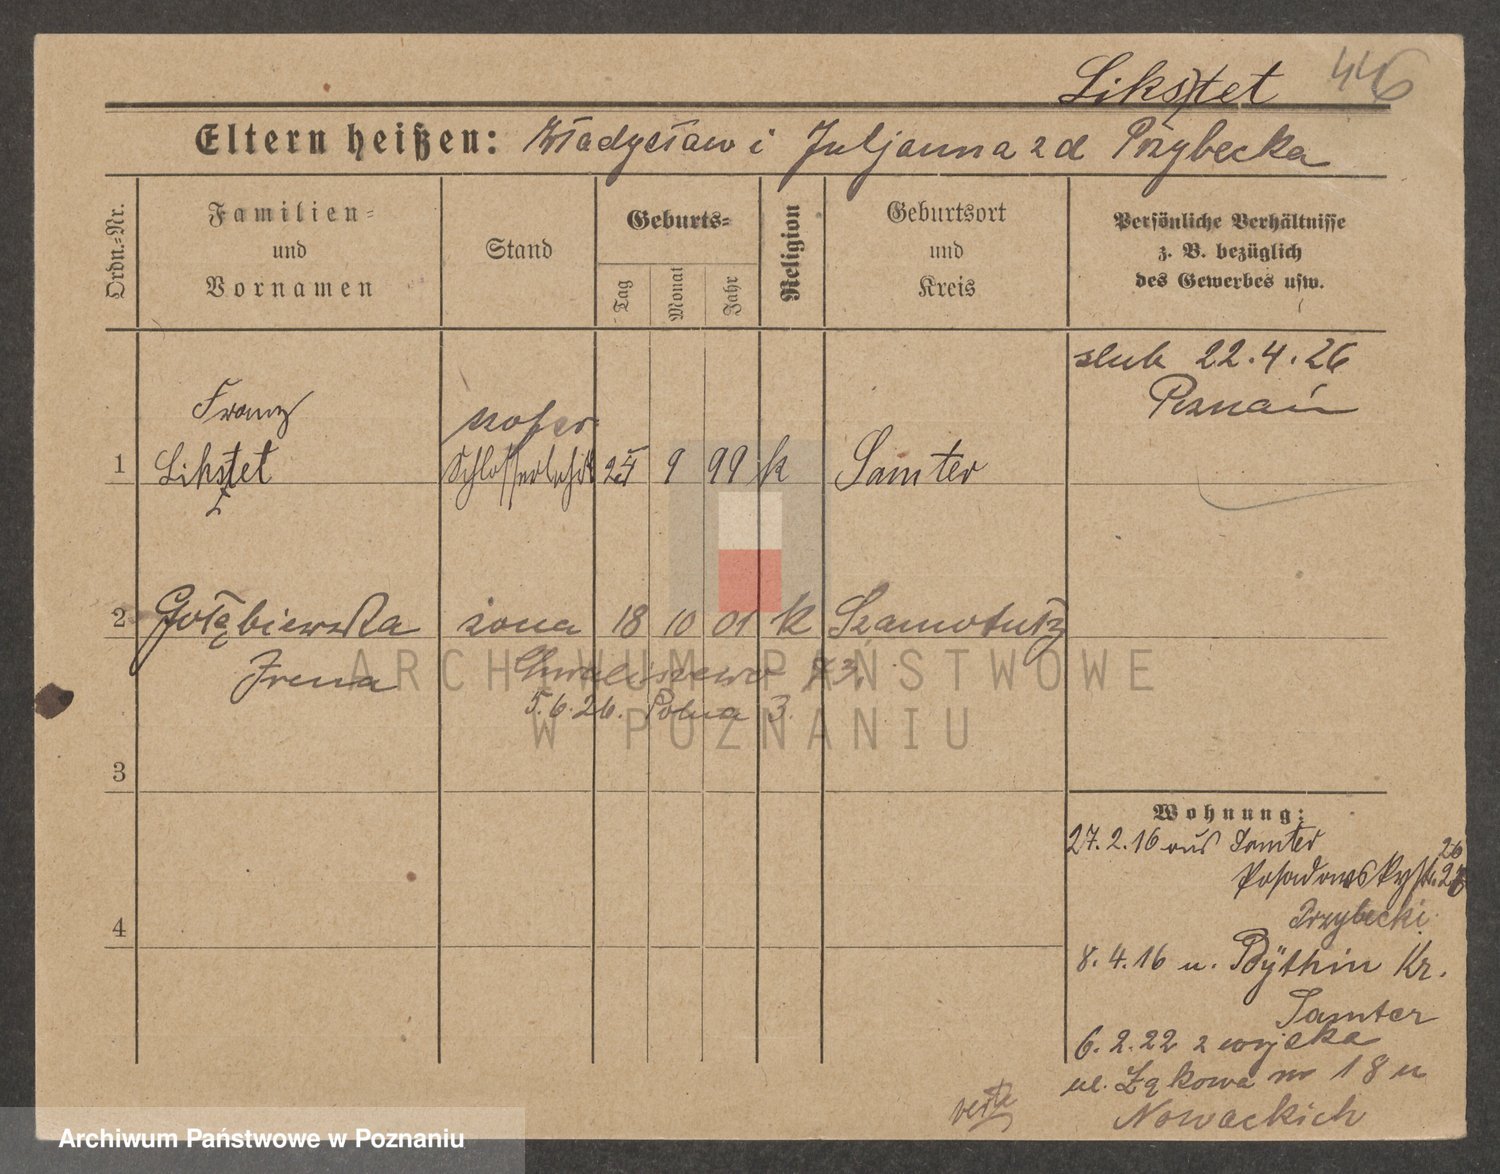 Likstet 446
Eltern heißen: Władysław i Juljanna z d Przybecka
Ordn.-Nr.
Familien-
und
Vornamen
Stand
Geburts-
Tag
Monat
Jahr
Religion
Geburtsort
und
Kreis
Persönliche Verhältnisse
z. B. bezüglich
des Gewerbes usw.
ślub 22.4.26
Poznań
Franz
szofer
1 Likstet 9 99 k Samter
2 Gołębiewska żona 18 10 01 k Szamotuły
Irena Chwaliszewo 73
5.6.26. Polna 3.
3
4
Wohnung:
27.2.16 aus Samter
26
Posadowskystr. 27
Przybecki
8.4.16 n. Bythin Kr.
Samter
6.2.22 z wojska
ul. Łąkowa nr 18 u
Nowackich
ARCHIWUM PAŃSTWOWE
W POZNANIU
Archiwum Państwowe w Poznaniu